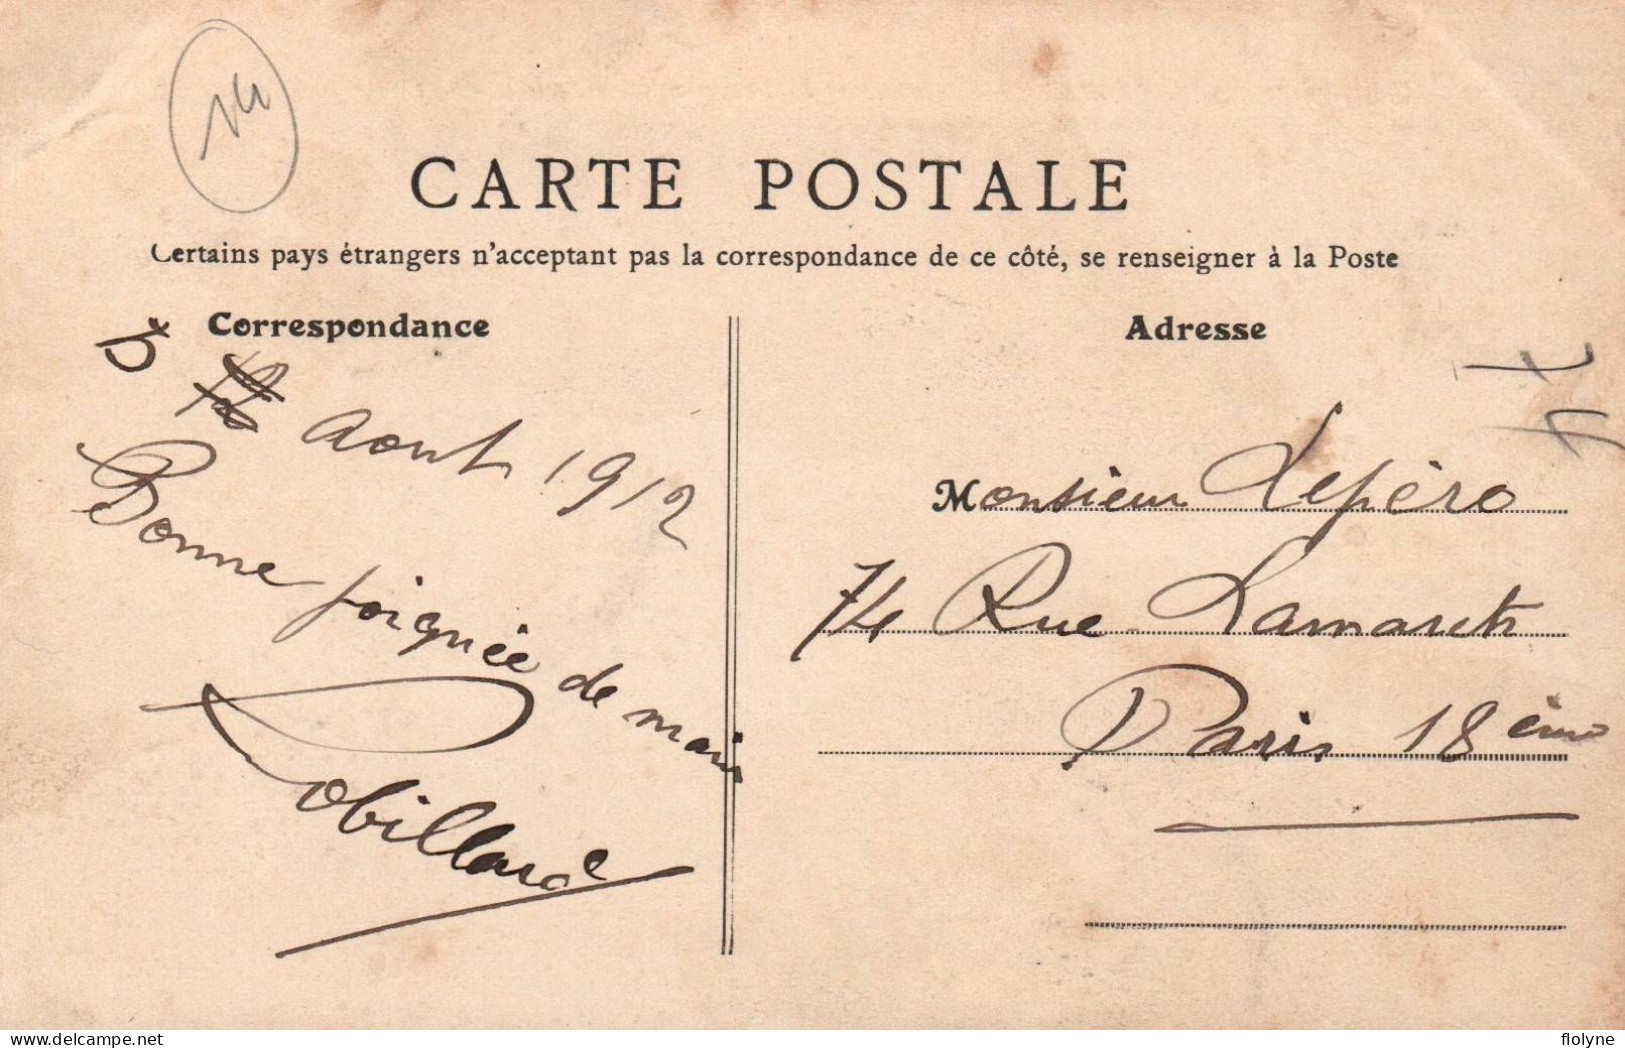 14
CARTE POSTALE
Certains pays étrangers n'acceptant pas la correspondance de ce côté, se renseigner à la Poste
Correspondance
Aout 1912
Bonne poignée de main
Robillard
Adresse
Monsieur Lepère
74 Rue Lamarck
Paris 18ème
delcampe.net
flolyne